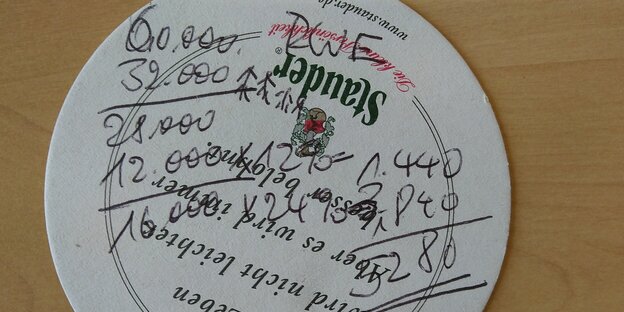 60.000. RWE
32.000
28.000
12.000 x 12% = 1.440
16.000 x 24% = 3.840
5.280
Leben
wird nicht leichter
aber es wird immer
besser belohnt.
Stauder®
Die kleine Persönlichkeit
www.stauder.de